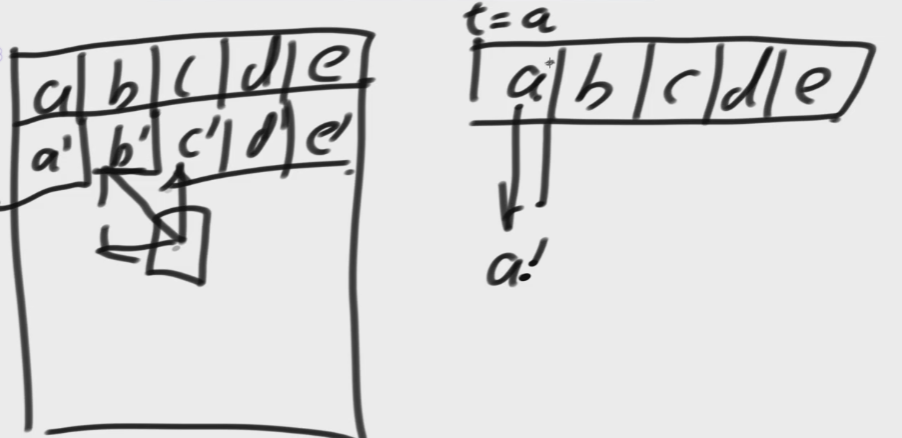 a b c d e
a' b' c' d' e'
t=a
a b c d e
a'